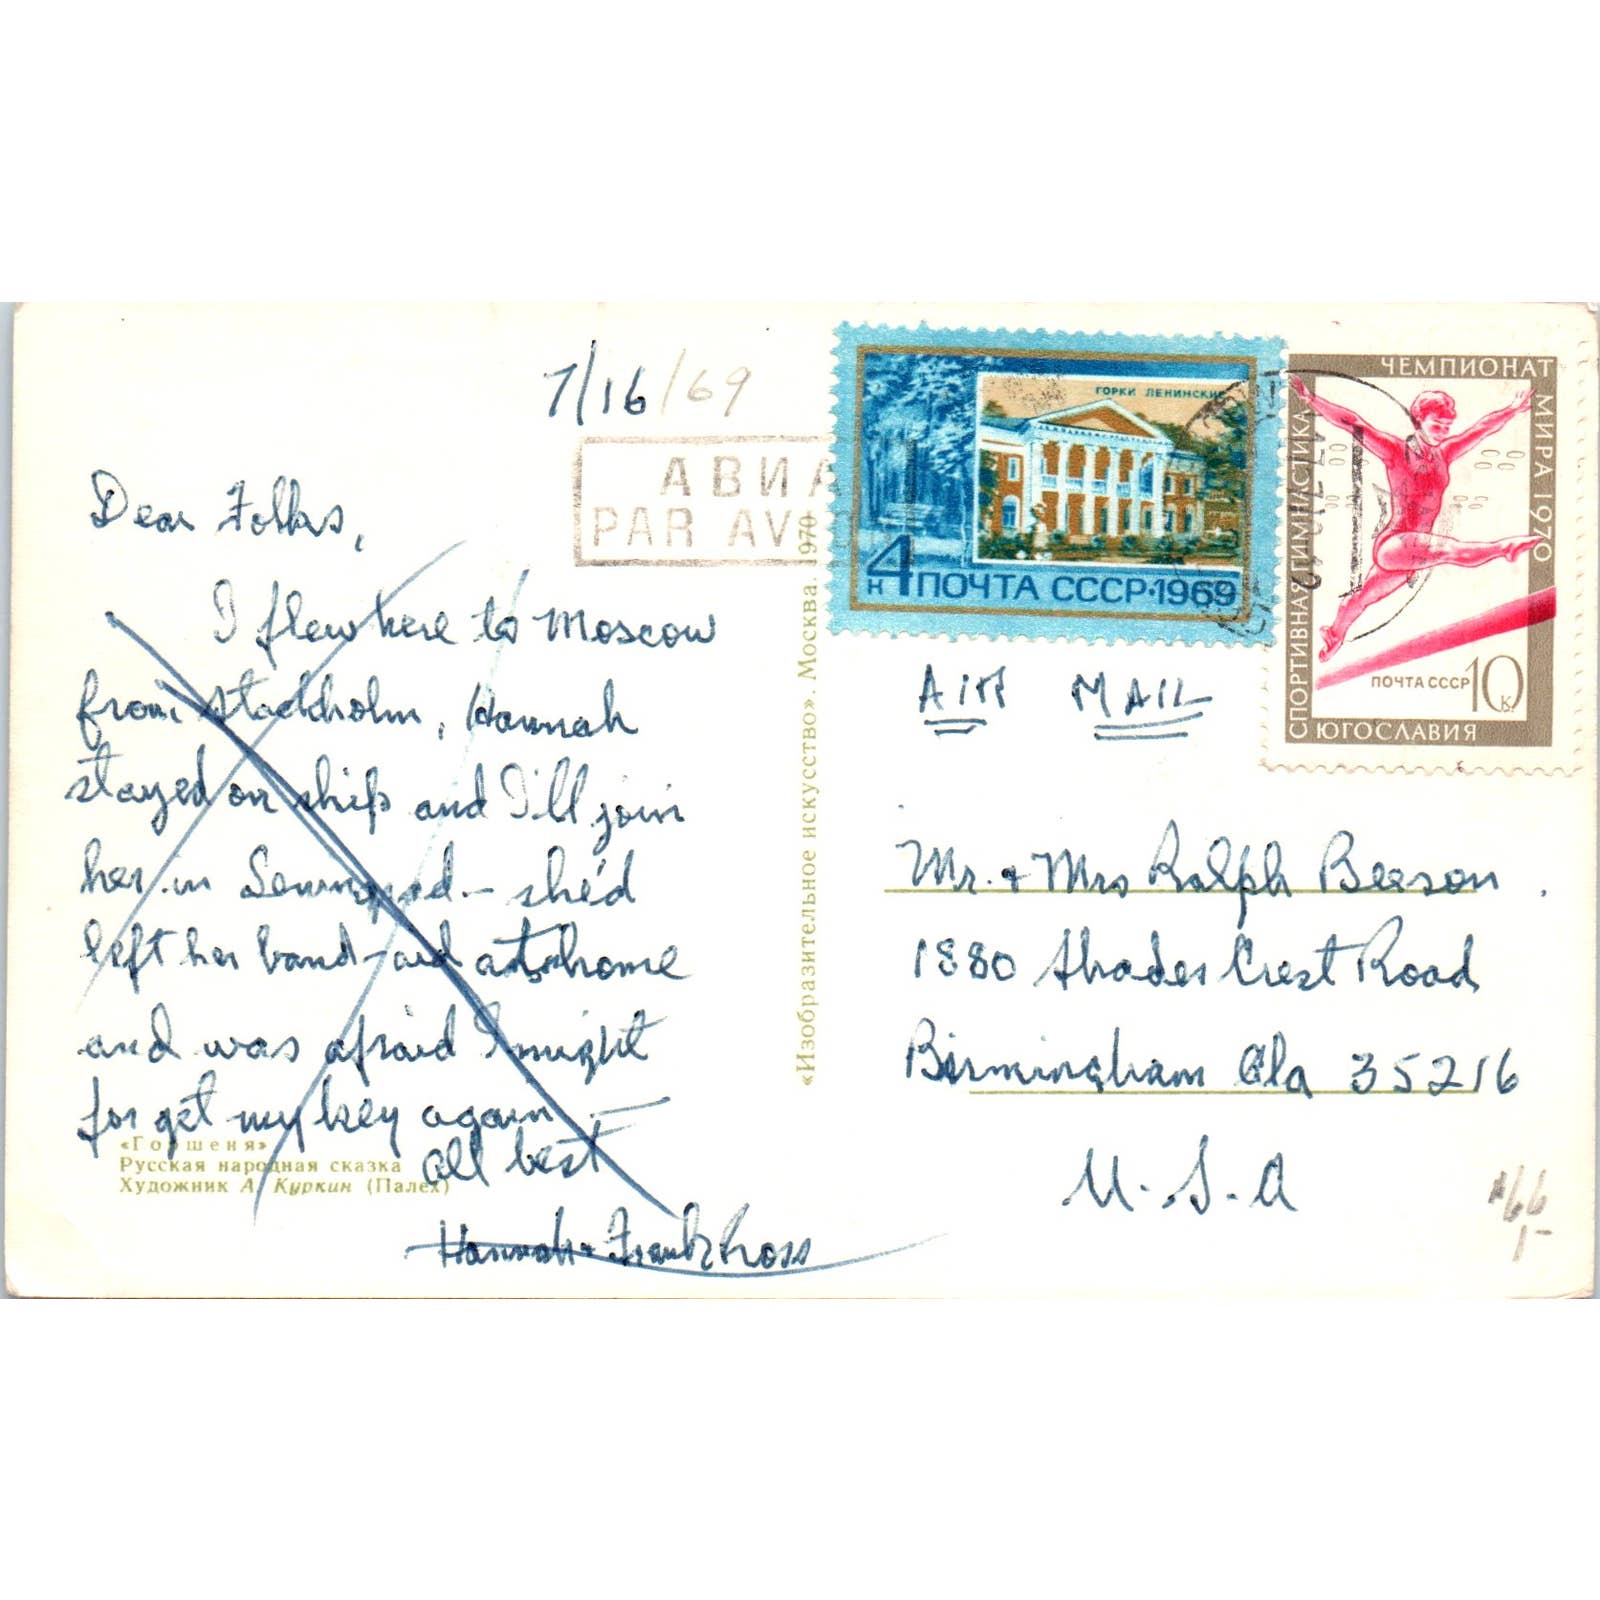 7/16/69
АВИА
PAR AVI
Dear Folks,
I flew here to Moscow
from Stockholm, Hannah
stayed on ship and I'll join
her in Leningrad - she'd
left her band-aid at home
and was afraid I might
forget my key again
All best
Hannah & Frank Ross
«Горшеня»
Русская народная сказка
Художник А. Куркин (Палех)
«Изобразительное искусство». Москва. 1970
ГОРКИ ЛЕНИНСКИЕ
4 к ПОЧТА СССР·1969
ЧЕМПИОНАТ МИРА 1970
СПОРТИВНАЯ ГИМНАСТИКА
ПОЧТА СССР 10 к.
ЮГОСЛАВИЯ
AIR MAIL
Mr. & Mrs Ralph Beeson
1880 Shades Crest Road
Birmingham Ala 35216
U.S.A